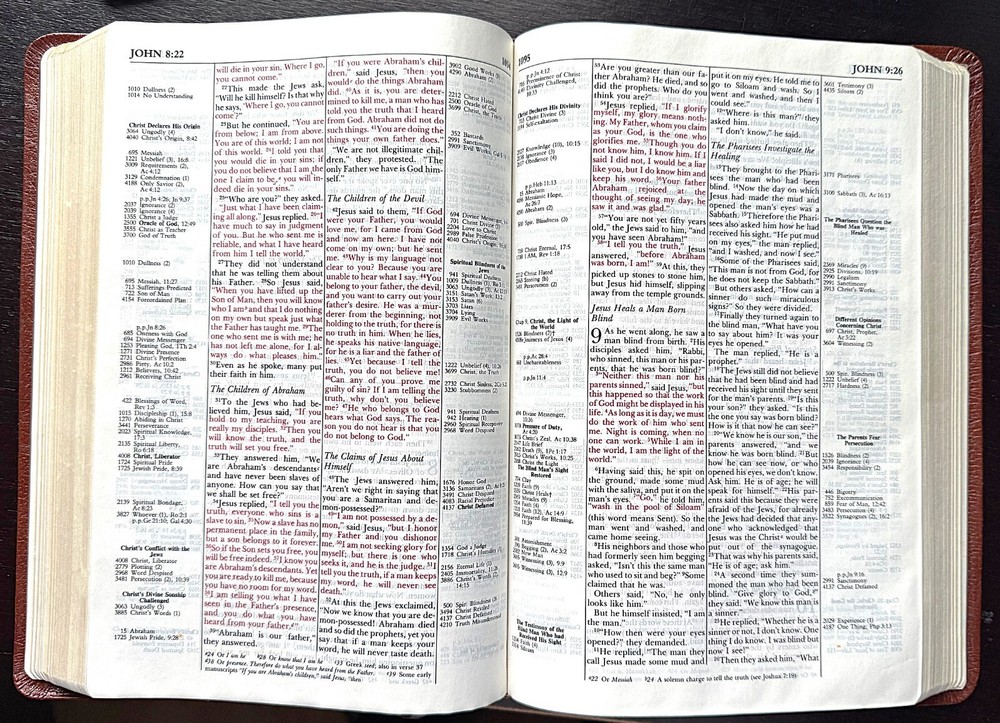 JOHN 8:22
1010 Dullness (2)
1014 No Understanding
Christ Declares His Origin
3064 Ungodly (4)
4040 Christ's Origin, 8:42
695 Messiah
1221 Unbelief (3), 16:8
3009 Requirements (2),
Ac 4:12
3129 Condemnation (1)
4188 Only Savior (2),
Ac 4:12
p.p.Jn 4:26; Jn 9:37
2037 Ignorance (2)
2039 Ignorance (4)
1355 Christ a Judge
2500 Oracle of God, 12:49
3585 Christ as Teacher
3700 God of Truth
1010 Dullness (2)
695 Messiah, 11:27
713 Sufferings Predicted
722 Son of Man
4154 Foreordained Plan
p.p.Jn 8:26
685 Oneness with God
694 Divine Messenger
1253 Pleasing God, 1Th 2:4
1271 Divine Presence
2731 Christ's Perfection
2986 Piety, Ac 10:2
1212 Believers, 10:42
2961 Receiving Christ
422 Blessings of Word,
Rev 1:3
1013 Discipleship (1), 15:8
1270 Abiding in Christ
3441 Perseverance
2023 Spiritual Knowledge,
17:3
Ro 6:18
2135 Spiritual Liberty,
4008 Christ, Liberator
1724 Spiritual Pride
1725 Jewish Pride, 8:39
2139 Spiritual Bondage,
Ac 8:23
3827 Whoever (1), Ro 2:1
p.p.Ge 21:10; Gal 4:30
Christ's Conflict with the
Jews
4008 Christ, Liberator
2779 Plotting (2)
2968 Word Despised
3481 Persecution (2), 10:39
Christ's Divine Sonship
Challenged
3063 Ungodly (3)
3885 Christ's Words (1)
15 Abraham
1725 Jewish Pride, 9:28
will die in your sin. Where I go,
you cannot come."
22This made the Jews ask,
"Will he kill himself? Is that why
he says, 'Where I go, you cannot
come'?"
23But he continued, "You are
from below; I am from above.
You are of this world; I am not
of this world. 24I told you that
you would die in your sins; if
you do not believe that I am the
one I claim to be, you will in-
deed die in your sins."
25"Who are you?" they asked.
"Just what I have been claim-
ing all along," Jesus replied. 26"I
have much to say in judgment
of you. But he who sent me is
reliable, and what I have heard
from him I tell the world."
27They did not understand
that he was telling them about
his Father. 28So Jesus said,
"When you have lifted up the
Son of Man, then you will know
who I am and that I do nothing
on my own but speak just what
the Father has taught me. 29The
one who sent me is with me; he
has not left me alone, for I al-
ways do what pleases him."
30Even as he spoke, many put
their faith in him.
The Children of Abraham
31To the Jews who had be-
lieved him, Jesus said, "If you
hold to my teaching, you are
really my disciples. 32Then you
will know the truth, and the
truth will set you free."
33They answered him, "We
are Abraham's descendants
and have never been slaves of
anyone. How can you say that
we shall be set free?"
34Jesus replied, "I tell you the
truth, everyone who sins is a
slave to sin. 35Now a slave has no
permanent place in the family,
but a son belongs to it forever.
36So if the Son sets you free, you
will be free indeed. 37I know you
are Abraham's descendants. Yet
you are ready to kill me, because
you have no room for my word.
38I am telling you what I have
seen in the Father's presence,
and you do what you have
heard from your father."
39"Abraham is our father,"
they answered.
"If you were Abraham's chil-
dren," said Jesus, "then you
would do the things Abraham
did. 40As it is, you are deter-
mined to kill me, a man who has
told you the truth that I heard
from God. Abraham did not do
such things. 41You are doing the
things your own father does."
"We are not illegitimate chil-
dren," they protested. "The
only Father we have is God him-
self."
The Children of the Devil
42Jesus said to them, "If God
were your Father, you would
love me, for I came from God
and now am here. I have not
come on my own; but he sent
me. 43Why is my language not
clear to you? Because you are
unable to hear what I say. 44You
belong to your father, the devil,
and you want to carry out your
father's desire. He was a mur-
derer from the beginning, not
holding to the truth, for there is
no truth in him. When he lies,
he speaks his native language,
for he is a liar and the father of
lies. 45Yet because I tell the
truth, you do not believe me!
46Can any of you prove me
guilty of sin? If I am telling the
truth, why don't you believe
me? 47He who belongs to God
hears what God says. The rea-
son you do not hear is that you
do not belong to God."
The Claims of Jesus About
Himself
48The Jews answered him,
"Aren't we right in saying that
you are a Samaritan and de-
mon-possessed?"
49"I am not possessed by a de-
mon," said Jesus, "but I honor
my Father and you dishonor
me. 50I am not seeking glory for
myself; but there is one who
seeks it, and he is the judge. 51I
tell you the truth, if a man keeps
my word, he will never see
death."
52At this the Jews exclaimed,
"Now we know that you are de-
mon-possessed! Abraham died
and so did the prophets, yet you
say that if a man keeps your
word, he will never taste death.
3902 Good Works
4290 Abraham
2212 Christ Hated
2500 Oracle of God
3699 Christ, the Truth
352 Bastards
2991 Sanctimony
3909 Evil Works,
694 Divine Messenger,
701 Christ Divine
2204 Love to Christ
2989 False Profession
4040 Christ's Origin
Spiritual Blindness of the
Jews
941 Spiritual Deafness
1010 Dullness (2),
3063 Ungodly (3),
3151 Satan's Work,
3152 Satan (6)
3703 Liars
3704 Lying
3909 Evil Works
1222 Unbelief (4), 10:26
3699 Christ, the Truth
2732 Christ Sinless,
3230 Stubbornness (2)
941 Spiritual Deafness
942 Hearing (1)
2960 Spiritual Receptivity
2968 Word Despised
1676 Honor God
3136 Samaritans (1), Ac 8:5
3491 Christ Reviled
3483 Racial Prejudice
4137 Christ Defamed
1354 God a Judge
1718 Christ's Humility
2156 Eternal Life (1)
2405 Immortality, 11:26
3886 Christ's Words (2),
14:15
500 Spir. Blindness (2)
3494 Christ Reviled
4137 Christ Defamed
4210 Truth Misunderstood
*24 Or I am he *28 Or know that I am he *33 Greek seed; also in verse 37
*38 Or presence. Therefore do what you have heard from the Father. *39 Some early
manuscripts "If you are Abraham's children," said Jesus, "then
1095
JOHN 9:26
p.p.Jn 4:12
Preeminence of Christ,
10:33
Divinity Challenged,
10:33
Declares His Divinity
Christ Divine (3)
Self-exaltation
Knowledge (10), 10:15
Ignorance (3)
Obedience (4)
p.p.Heb 11:13
Abraham
Messianic Hope,
Ac 26:7
Abraham (2)
Spir. Blindness (3)
Christ Eternal, 17:5
I AM, Rev 1:18
2212 Christ Hated
Stoning (6)
Persecution (2)
Chap 9. Christ, the Light of
the World
Blindness (2)
Journeys of Jesus (4)
p.p.Ac 28:4
Uncharitableness
p.p.Jn 11:4
694 Divine Messenger,
10:36
Promise of Duty,
Ac 4:20
Christ's Zeal, Ac 10:38
Life Brief
Death (9), 1Pe 1:17
Christ's Works, 10:25
Christ the Light
The Blind Man's Sight
Restored
Clay
Faith (9)
Christ (Irish)
Miracles (9)
Faith (4)
Faith (12), Ac 14:9
Prepared for Blessing,
11:39
Astonishment
Begging (2), Ac 3:2
New Man
Spir. Blindness (3), 9:9
Testimony (3), 12:9
The Testimony of the
Blind Man Who had
Received His Sight
53Are you greater than our fa-
ther Abraham? He died, and so
did the prophets. Who do you
think you are?"
54Jesus replied, "If I glorify
myself, my glory means noth-
ing. My Father, whom you claim
as your God, is the one who
glorifies me. 55Though you do
not know him, I know him. If I
said I did not, I would be a liar
like you, but I do know him and
keep his word. 56Your father
Abraham rejoiced at the
thought of seeing my day; he
saw it and was glad."
57"You are not yet fifty years
old," the Jews said to him, "and
you have seen Abraham!"
58"I tell you the truth," Jesus
answered, "before Abraham
was born, I am!" 59At this, they
picked up stones to stone him,
but Jesus hid himself, slipping
away from the temple grounds.
Jesus Heals a Man Born
Blind
9 As he went along, he saw a
man blind from birth. 2His
disciples asked him, "Rabbi,
who sinned, this man or his par-
ents, that he was born blind?"
3"Neither this man nor his
parents sinned," said Jesus, "but
this happened so that the work
of God might be displayed in his
life. 4As long as it is day, we must
do the work of him who sent
me. Night is coming, when no
one can work. 5While I am in
the world, I am the light of the
world."
6Having said this, he spit on
the ground, made some mud
with the saliva, and put it on the
man's eyes. 7"Go," he told him,
"wash in the pool of Siloam"
(this word means Sent). So the
man went and washed, and
came home seeing.
8His neighbors and those who
had formerly seen him begging
asked, "Isn't this the same man
who used to sit and beg?" 9Some
claimed that he was.
Others said, "No, he only
looks like him."
But he himself insisted, "I am
the man."
10"How then were your eyes
opened?" they demanded.
11He replied, "The man they
call Jesus made some mud and
put it on my eyes. He told me to
go to Siloam and wash. So I
went and washed, and then I
could see."
12"Where is this man?" they
asked him.
"I don't know," he said.
The Pharisees Investigate the
Healing
13They brought to the Phari-
sees the man who had been
blind. 14Now the day on which
Jesus had made the mud and
opened the man's eyes was a
Sabbath. 15Therefore the Phari-
sees also asked him how he had
received his sight. "He put mud
on my eyes," the man replied,
"and I washed, and now I see."
16Some of the Pharisees said,
"This man is not from God, for
he does not keep the Sabbath."
But others asked, "How can a
sinner do such miraculous
signs?" So they were divided.
17Finally they turned again to
the blind man, "What have you
to say about him? It was your
eyes he opened."
The man replied, "He is a
prophet."
18The Jews still did not believe
that he had been blind and had
received his sight until they sent
for the man's parents. 19"Is this
your son?" they asked. "Is this
the one you say was born blind?
How is it that now he can see?"
20"We know he is our son," the
parents answered, "and we
know he was born blind. 21But
how he can see now, or who
opened his eyes, we don't know.
Ask him. He is of age; he will
speak for himself." 22His par-
ents said this because they were
afraid of the Jews, for already
the Jews had decided that any-
one who acknowledged that
Jesus was the Christ would be
put out of the synagogue.
23That was why his parents said,
"He is of age; ask him."
24A second time they sum-
moned the man who had been
blind. "Give glory to God,"
they said. "We know this man is
a sinner."
25He replied, "Whether he is a
sinner or not, I don't know. One
thing I do know. I was blind but
now I see!"
26Then they asked him, "What
3603 Testimony (3)
4435 Siloam (2)
3171 Pharisees
3100 Sabbath (3), Ac 16:13
The Pharisees Question the
Blind Man Who was
Healed
2369 Miracles (9)
2925 Divisions, 10:19
2990 Legalism
2991 Sanctimony
3913 Christ's Works
Different Opinions
Concerning Christ
697 Christ, Prophet,
Ac 3:22
3604 Witnessing (2)
500 Spir. Blindness (2)
1222 Unbelief (4)
2717 Hardness (2)
The Parents Fear
Persecution
1326 Blindness (2)
2039 Ignorance (4)
2454 Responsibility (2)
446 Bigotry
792 Excommunication
839 Fear of Man, 12:42
3482 Persecution (4)
3522 Synagogues (2), 16:2
p.p.Jn 9:16
2991 Sanctimony
4137 Christ Defamed
2029 Experience (1)
4187 One Thing, Php 3:13
*22 Or Messiah *24 A solemn charge to tell the truth (see Joshua 7:19)